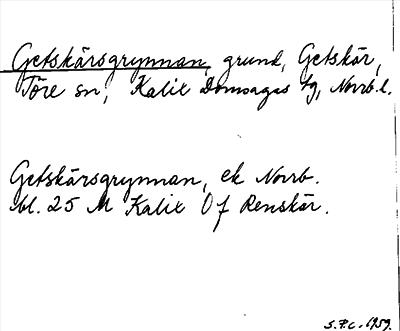 Getskärsgrynnan, grund, Getskär,
Töre sn, Kalix Domsagas tg, Norrb. l.
Getskärsgrynnan, ek Norrb.
bl. 25 M Kalix Öf Renskär.
S.F.C. 1959.